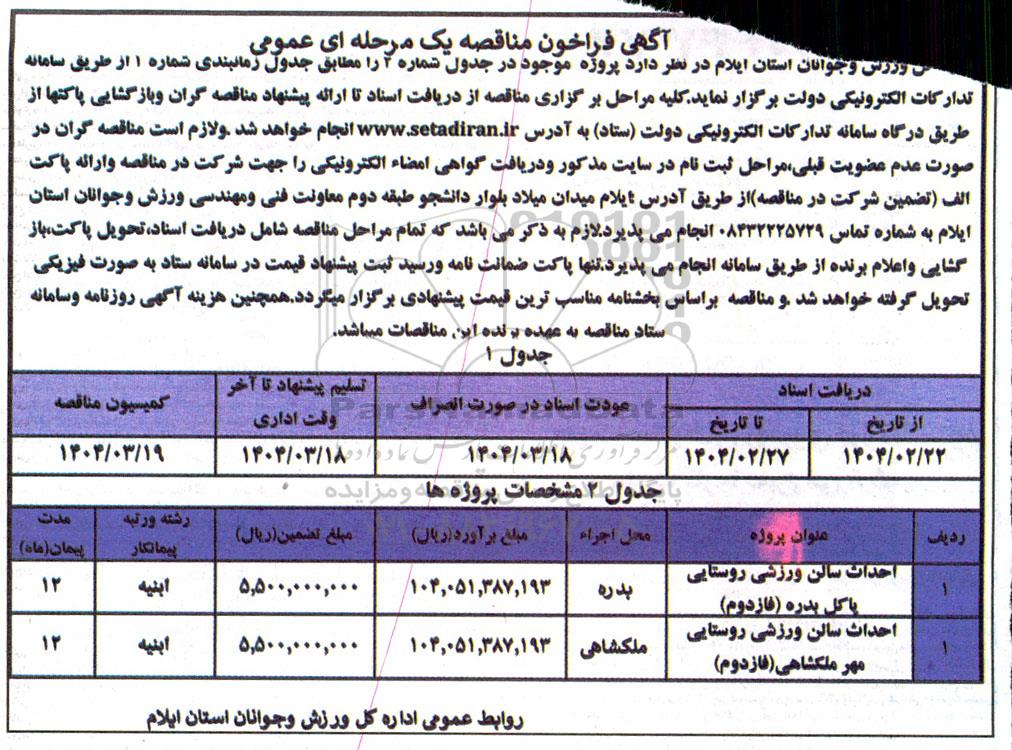 آگهی فراخون مناقصه یک مرحله ای عمومی
ورزش وجوانان استان ایلام در نظر دارد پروژه موجود در جدول شماره ۲ را مطابق جدول زمانبندی شماره ۱ از طریق سامانه
تدارکات الکترونیکی دولت برگزار نماید.کلیه مراحل بر گزاری مناقصه از دریافت اسناد تا ارائه پیشنهاد مناقصه گران وبازگشایی پاکتها از
طریق درگاه سامانه تدارکات الکترونیکی دولت (ستاد) به آدرس www.setadiran.ir انجام خواهد شد .ولازم است مناقصه گران در
صورت عدم عضویت قبلی،مراحل ثبت نام در سایت مذکور ودریافت گواهی امضاء الکترونیکی را جهت شرکت در مناقصه وارائه پاکت
الف (تضمین شرکت در مناقصه)از طریق آدرس :ایلام میدان میلاد بلوار دانشجو طبقه دوم معاونت فنی ومهندسی ورزش وجوانان استان
ایلام به شماره تماس ۰۸۴۳۲۲۲۵۷۲۹ انجام می پذیرد.لازم به ذکر می باشد که تمام مراحل مناقصه شامل دریافت اسناد،تحویل پاکت،باز
گشایی واعلام برنده از طریق سامانه انجام می پذیرد.تنها پاکت ضمانت نامه ورسید ثبت پیشنهاد قیمت در سامانه ستاد به صورت فیزیکی
تحویل گرفته خواهد شد .و مناقصه براساس بخشنامه مناسب ترین قیمت پیشنهادی برگزار میگردد.همچنین هزینه آگهی روزنامه وسامانه
ستاد مناقصه به عهده برنده این مناقصات میباشد.
جدول ۱
دریافت اسناد | عودت اسناد در صورت انصراف | تسلیم پیشنهاد تا آخر وقت اداری | کمیسیون مناقصه
از تاریخ | تا تاریخ
۱۴۰۴/۰۲/۲۲ | ۱۴۰۴/۰۲/۲۷ | ۱۴۰۴/۰۳/۱۸ | ۱۴۰۴/۰۳/۱۸ | ۱۴۰۴/۰۳/۱۹
جدول ۲ مشخصات پروژه ها
ردیف | عنوان پروژه | محل اجراء | مبلغ برآورد(ریال) | مبلغ تضمین(ریال) | رشته ورتبه پیمانکار | مدت پیمان(ماه)
۱ | احداث سالن ورزشی روستایی پاکل بدره (فازدوم) | بدره | ۱۰۴,۰۵۱,۳۸۷,۱۹۳ | ۵,۵۰۰,۰۰۰,۰۰۰ | ابنیه | ۱۲
۱ | احداث سالن ورزشی روستایی مهر ملکشاهی(فازدوم) | ملکشاهی | ۱۰۴,۰۵۱,۳۸۷,۱۹۳ | ۵,۵۰۰,۰۰۰,۰۰۰ | ابنیه | ۱۲
روابط عمومی اداره کل ورزش وجوانان استان ایلام